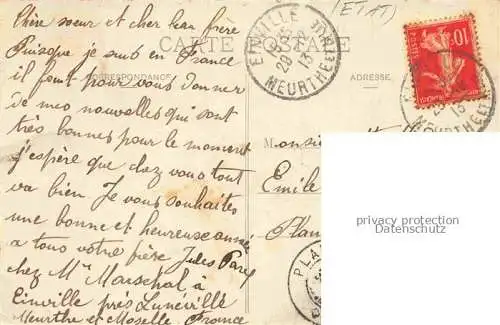 (ETAT)
CARTE POSTALE
CORRESPONDANCE
ADRESSE
EINVILLE
29 12 13
MEURTHE ET
POSTES
10
Chère sœur et cher beau frère
Puisque je suis en France
il faut pour vous donner
de mes nouvelles qui sont
très bonnes pour le moment
j'espère que chez vous tout
va bien Je vous souhaite
une bonne et heureuse année
a tous votre frère Jules
chez Mr Marschal à
Einville près Lunéville
Meurthe et Moselle France
Monsieur
Emile
Plan
PLA
MEURTHE ET
privacy protection
Datenschutz